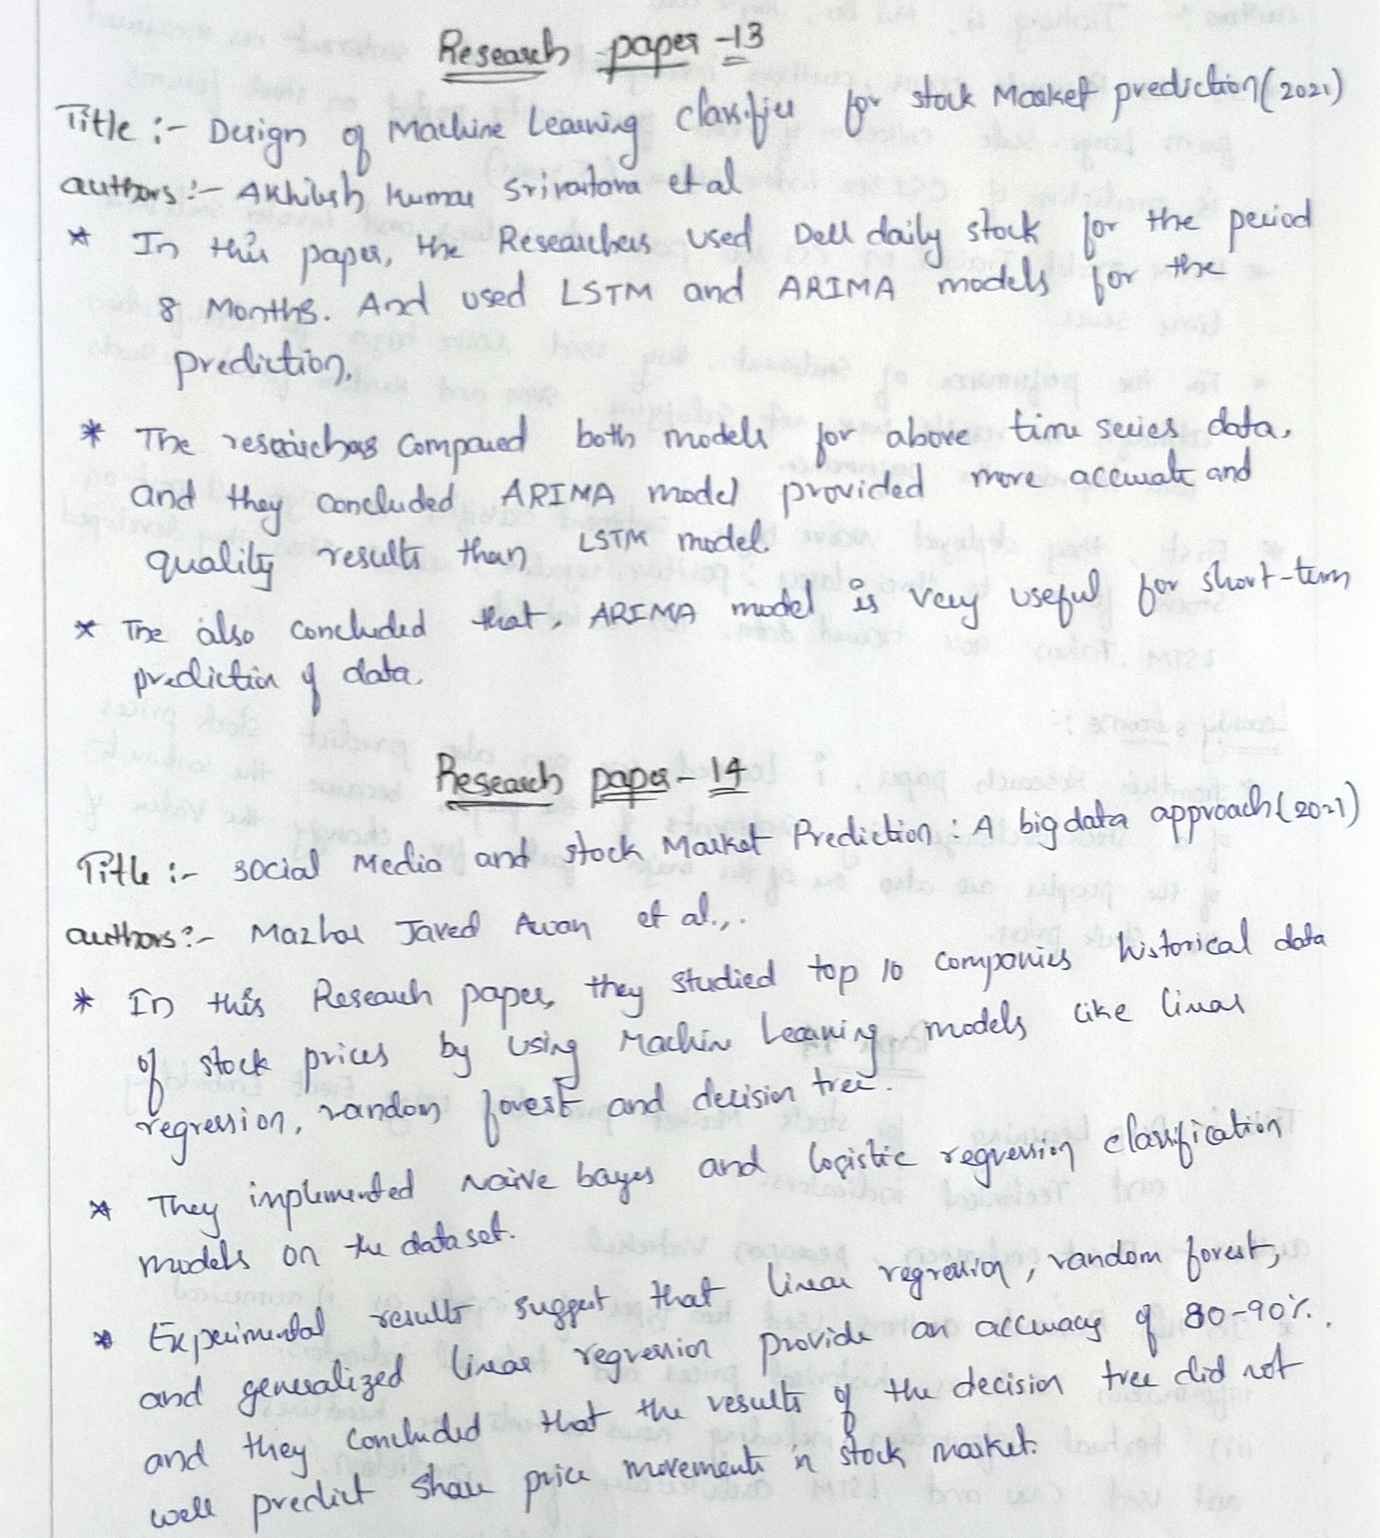 Research paper -13
Title :- Design of Machine Learning classifier for stock Market prediction(2021)
authors :- Akhilesh Kumar Srivastava et al
* In this paper, the Researchers used Dell daily stock for the period
8 Months. And used LSTM and ARIMA models for the
prediction.
* The researchers compared both models for above time series data,
and they concluded ARIMA model provided more accurate and
quality results than LSTM model.
* The also concluded that, ARIMA model is very useful for short-term
prediction of data.
Research paper - 14
Title :- social Media and stock Market Prediction : A big data approach(2021)
authors :- Mazhar Javed Awan et al.,.
* In this Research paper, they studied top 10 companies historical data
of stock prices by using Machine Learning models like linear
regression, random forest and decision tree.
* They implemented naive bayes and logistic regression classification
models on the dataset.
* Experimental results suggest that linear regression, random forest,
and generalized linear regression provide an accuracy of 80-90%.
and they concluded that the results of the decision tree did not
well predict share price movements in stock market.